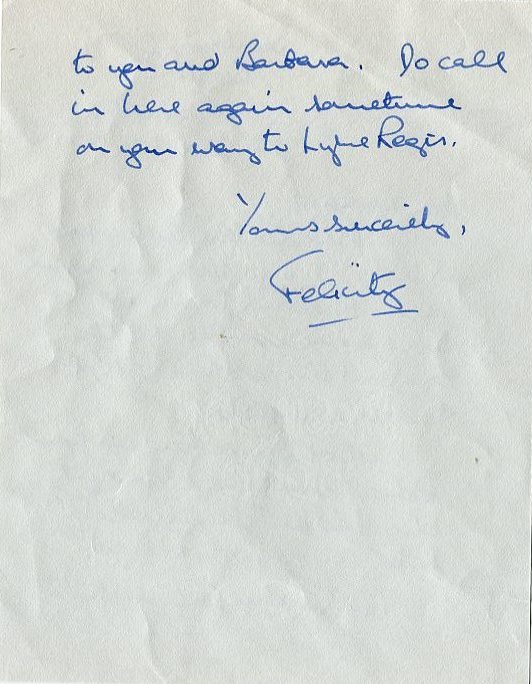 to you and Barbara. Do call
in here again sometime
on your way to Lyme Regis.
Yours sincerely,
Felicity